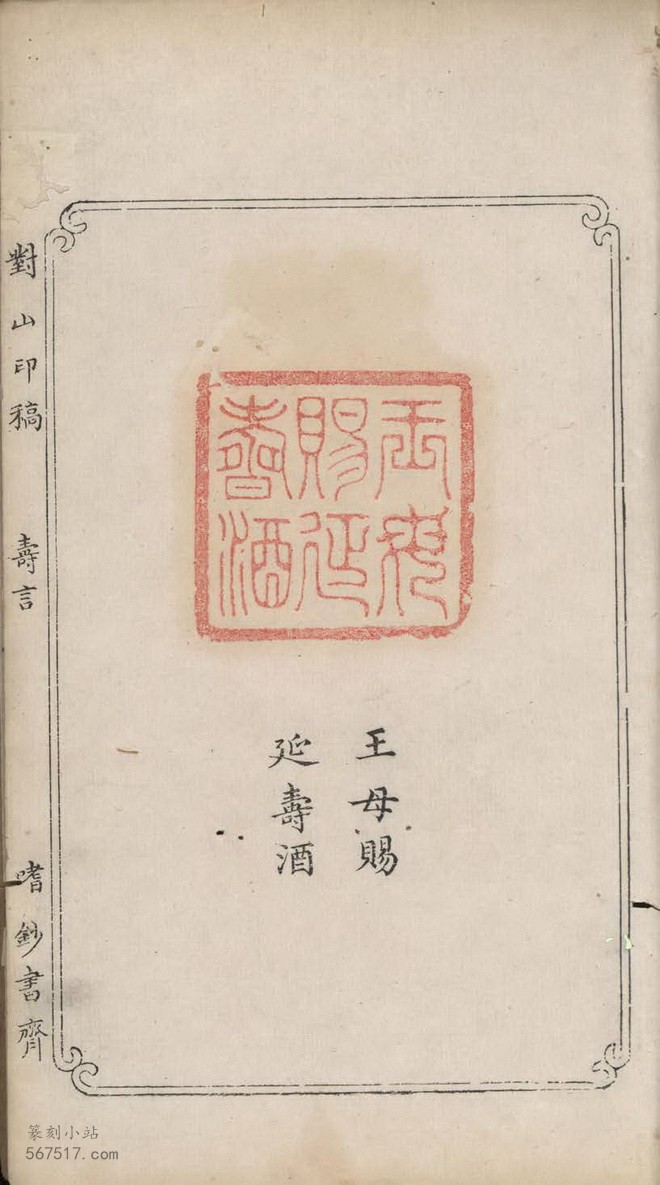 王母賜
延壽酒
王母賜延壽酒
對山印稿 壽言 嗜鈔書齊
篆刻小站
567517.com